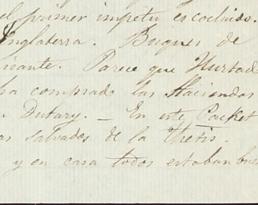 el primer impetu es cochino.
Inglaterra. Buques de
Parece que Hurtad
ha comprado las Haciendas
Dutary. — En este Packet
as salvados de la Thetis.
y en casa todos estaban bue